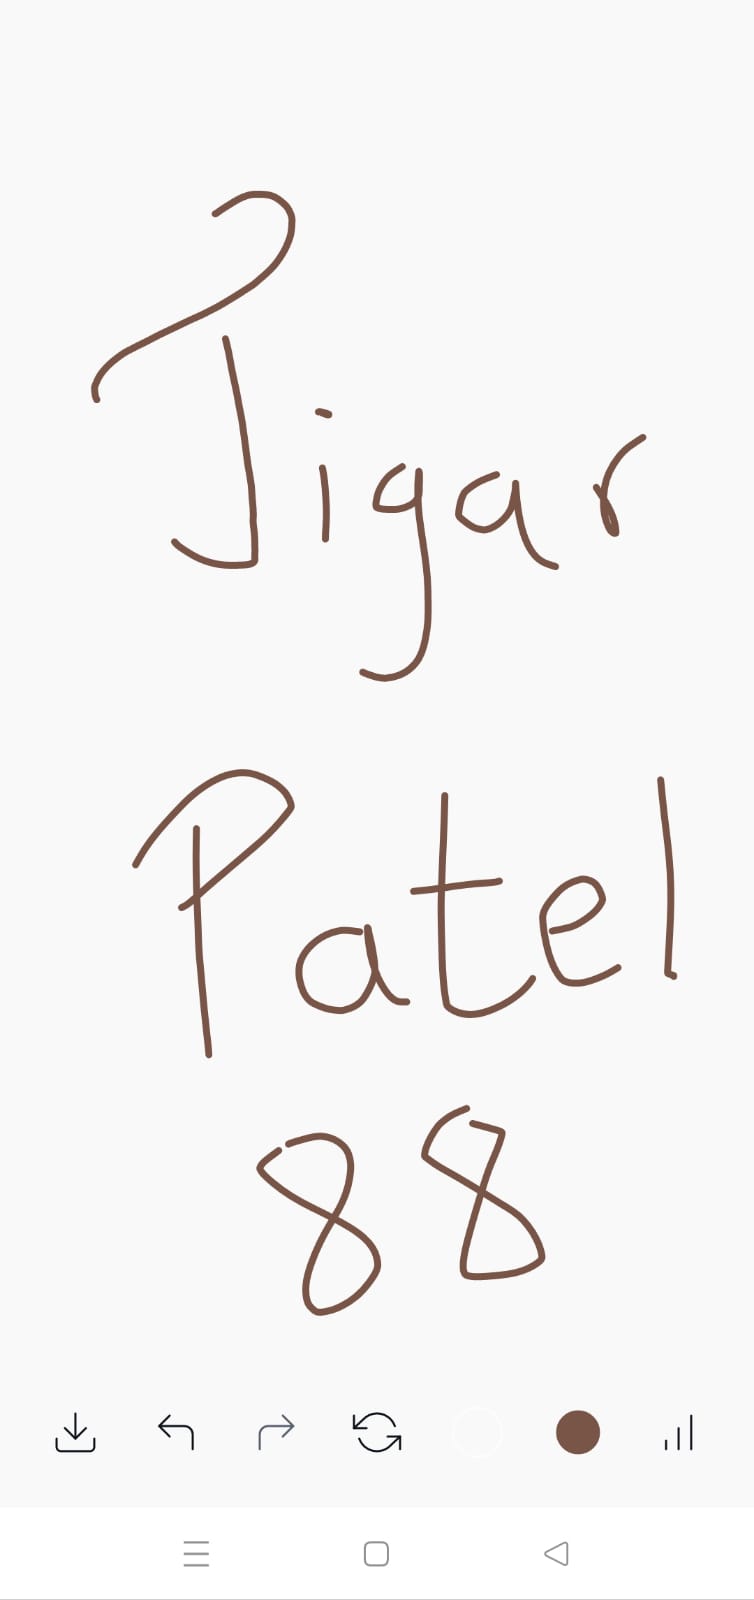 Jigar
Patel
88